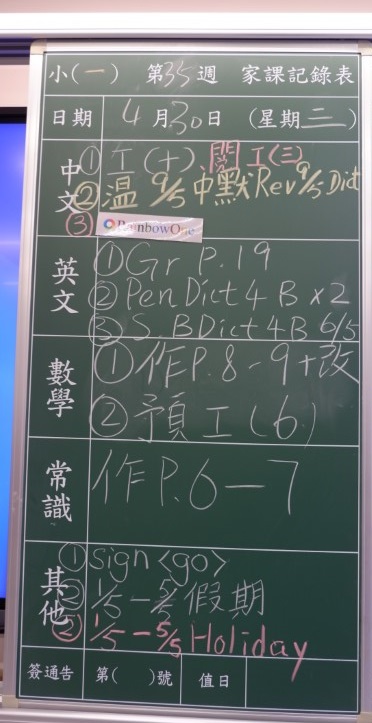 小(一) 第35週 家課記錄表
日期 4月30日 (星期三)
中文
① 工(十) 閱工(三)
② 温 9/5 中默 Rev 9/5 Dict
③ RainbowOne
英文
① Gr P.19
② Pen Dict 4 B x 2
③ S. B Dict 4B 6/5
數學
① 作P.8-9+改
② 預工(6)
常識
作P.6-7
其他
① sign <go>
② 1/5 - 5/5 假期
② 1/5 - 5/5 Holiday
簽通告 第( )號 值日